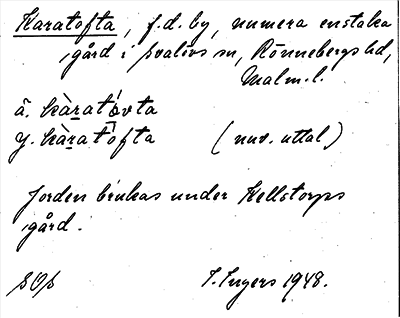 Karatofta, f.d. by, numera enstaka
gård i Svalövs sn, Rönnebergs hd,
Malm. l.
ä. kàratòvta
y. kàratòfta (nuv. uttal)
Jorden brukas under Kellstorps
gård.
SOs I. Ingers 1948.